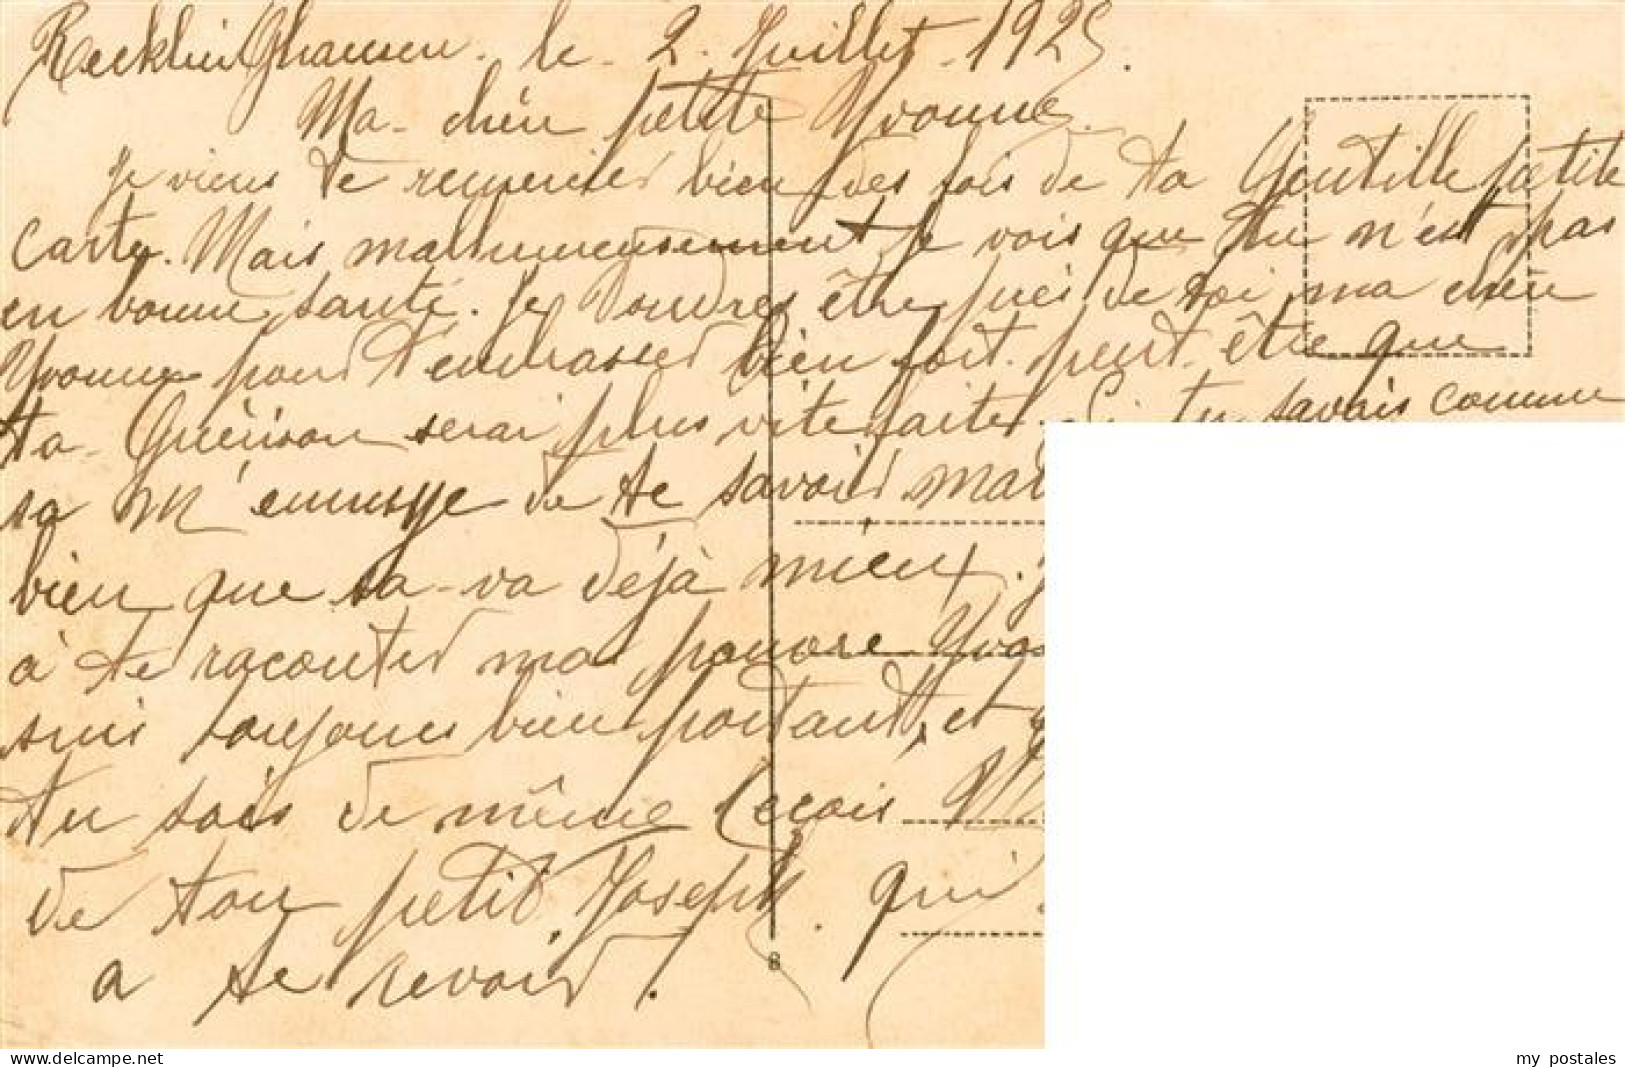 Recklinghausen. le. 2. Juillet. 1925.
Ma chère petite Yvonne.
Je viens te remercier bien des fois de ta Gentille petite
Carte. Mais malheureusement je vois que tu n'est pas
en bonne santé. Je voudres être près de toi ma chère
Yvonne pour t'embrasser bien fort. peut être que
ta Guérison serai plus vite faite. Si tu savais comme
sa m'ennuye de te savoir mal
bien que sa va déjà mieux. J
à te raconter ma pauvre Yvon
suis toujours bien portant, et q
tu sois de même Reçois
de ton petit Joseph. qui
a te revoir.
8
www.delcampe.net
my postales